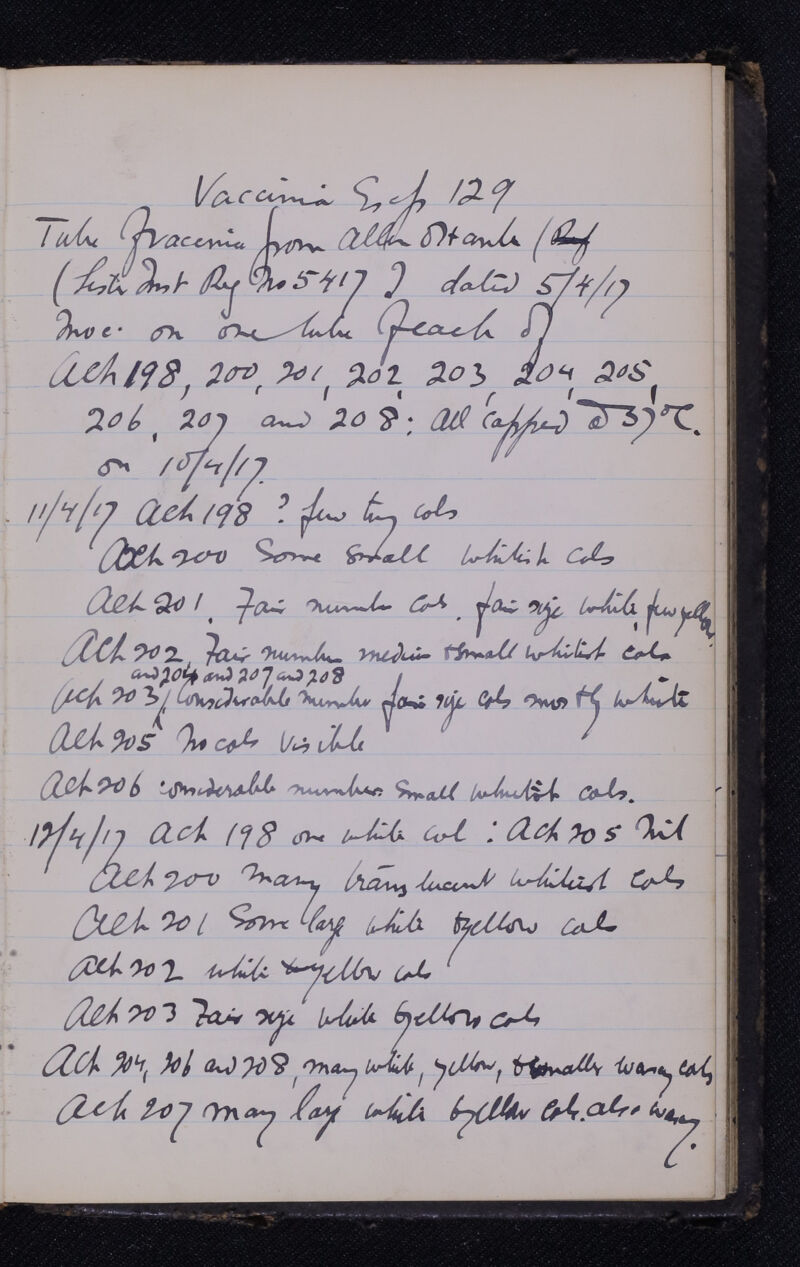 Vaccinia Exp 129
Tube Vaccinia from Allen & Hanb (Ref
(Lister Inst Reg No 5417) dated 5/4/17
Inoc. on one tube of each of
Ach 198, 200, 201, 202, 203, 204, 205,
206, 207 and 208: All capped @ 37°C.
on 10/4/17.
11/4/17 Ach 198 ? few tiny cols
Ach 200 Some small whitish cols
Ach 201. Fair number cols. fair size white, few yellow.
Ach 202, Fair number medium & small whitish cols
and 204 and 207 and 208
Ach 203, Considerable number fair size cols mostly white
Ach 205 No cols visible
Ach 206 considerable number small whitish cols.
12/4/17 Ach 198 one white col : Ach 205 Nil
Ach 200 Many translucent whitish cols
Ach 201 Some large white & yellow cols
Ach 202 white & yellow cols
Ach 203 Fair size white & yellow cols
Ach 204, 206 and 208, many white, yellow, & smaller waxy cols
Ach 207 many large white & yellow cols. also waxy.